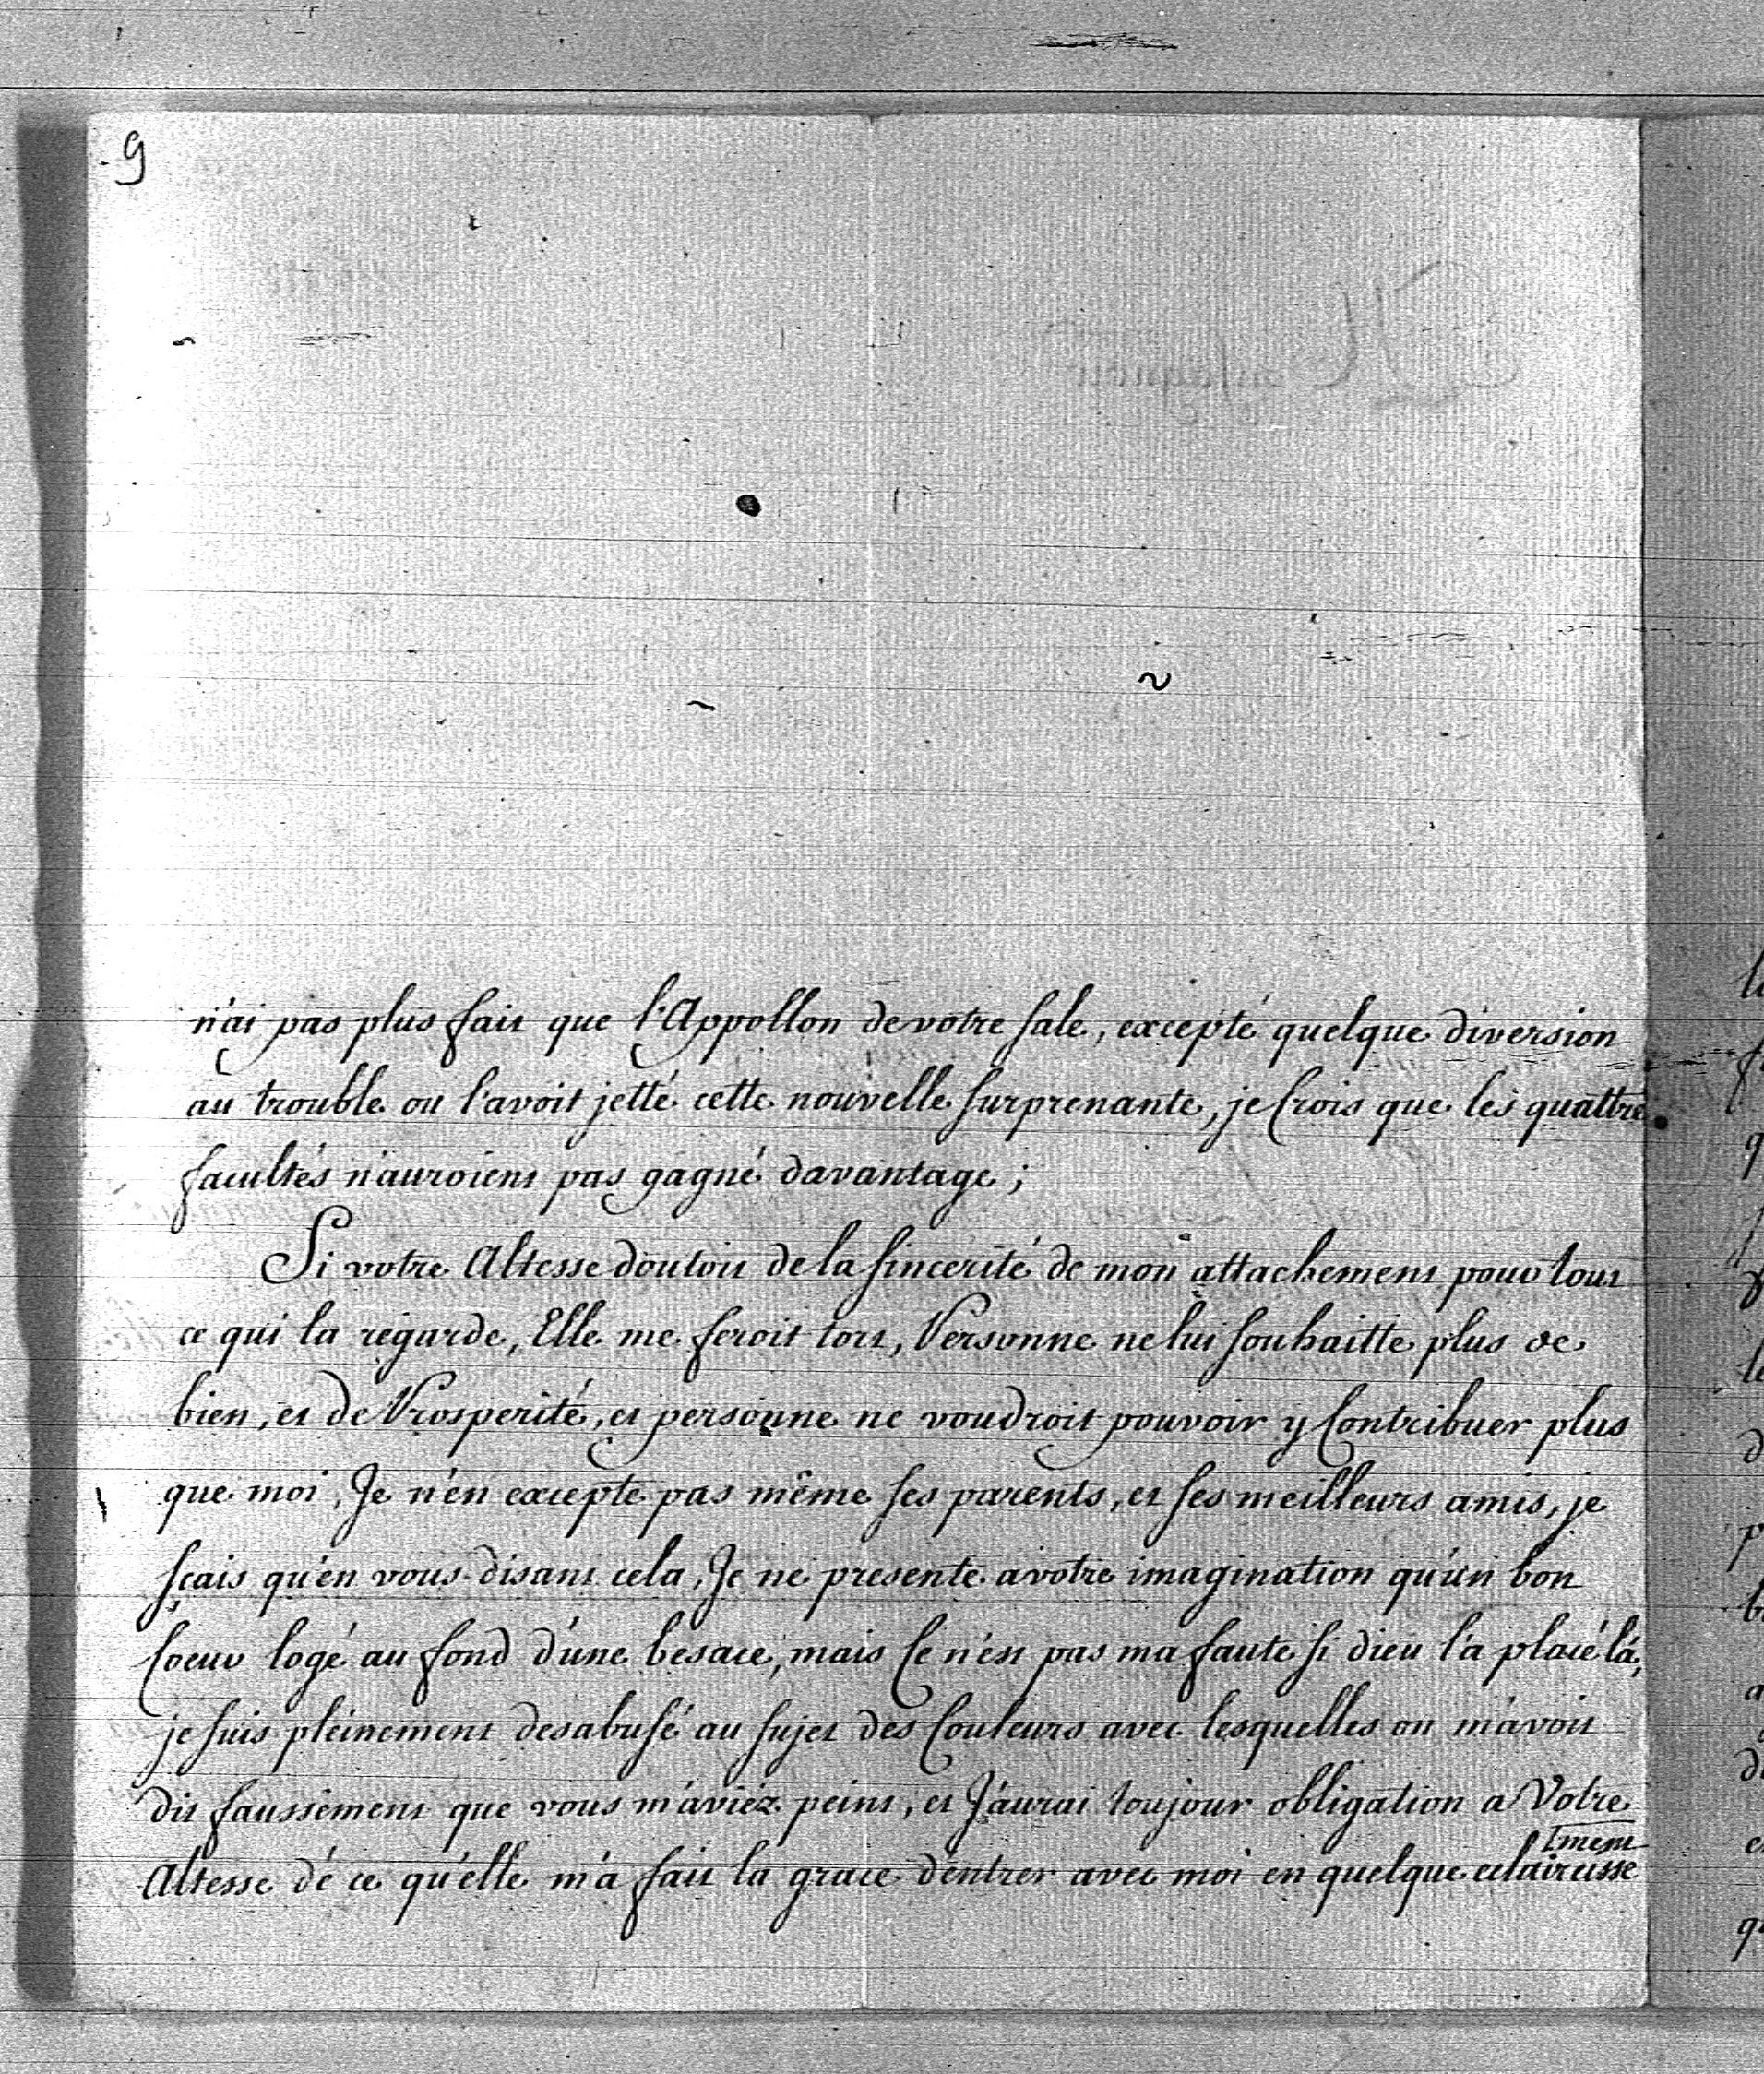 9
n'ai pas plus fait que l'Appollon de votre sale, excepté quelque diversion
au trouble ou l'avoit jetté cette nouvelle surprenante, je Crois que les quattre
facultés n'auroient pas gagné davantage ;
Si votre Altesse doutoit de la sincerité de mon attachement pour tout
ce qui la regarde, Elle me feroit tort, Personne ne lui souhaitte plus de
bien, et de Prosperité, et personne ne voudroit pouvoir y Contribuer plus
que moi, Je n'en excepte pas même ses parents, et ses meilleurs amis, je
sçais qu'en vous disant cela, Je ne presente a votre imagination qu'un bon
Coeur logé au fond d'une besace, mais Ce n'est pas ma faute si dieu l'a placé là,
je suis pleinement desabusé au sujet des Couleurs avec lesquelles on m'avoit
dit faussement que vous m'aviez peint, et J'aurai toujour obligation a Votre
Altesse dé ce qu'elle m'a fait la grace d'entrer avec moi en quelque eclaircisse
ment